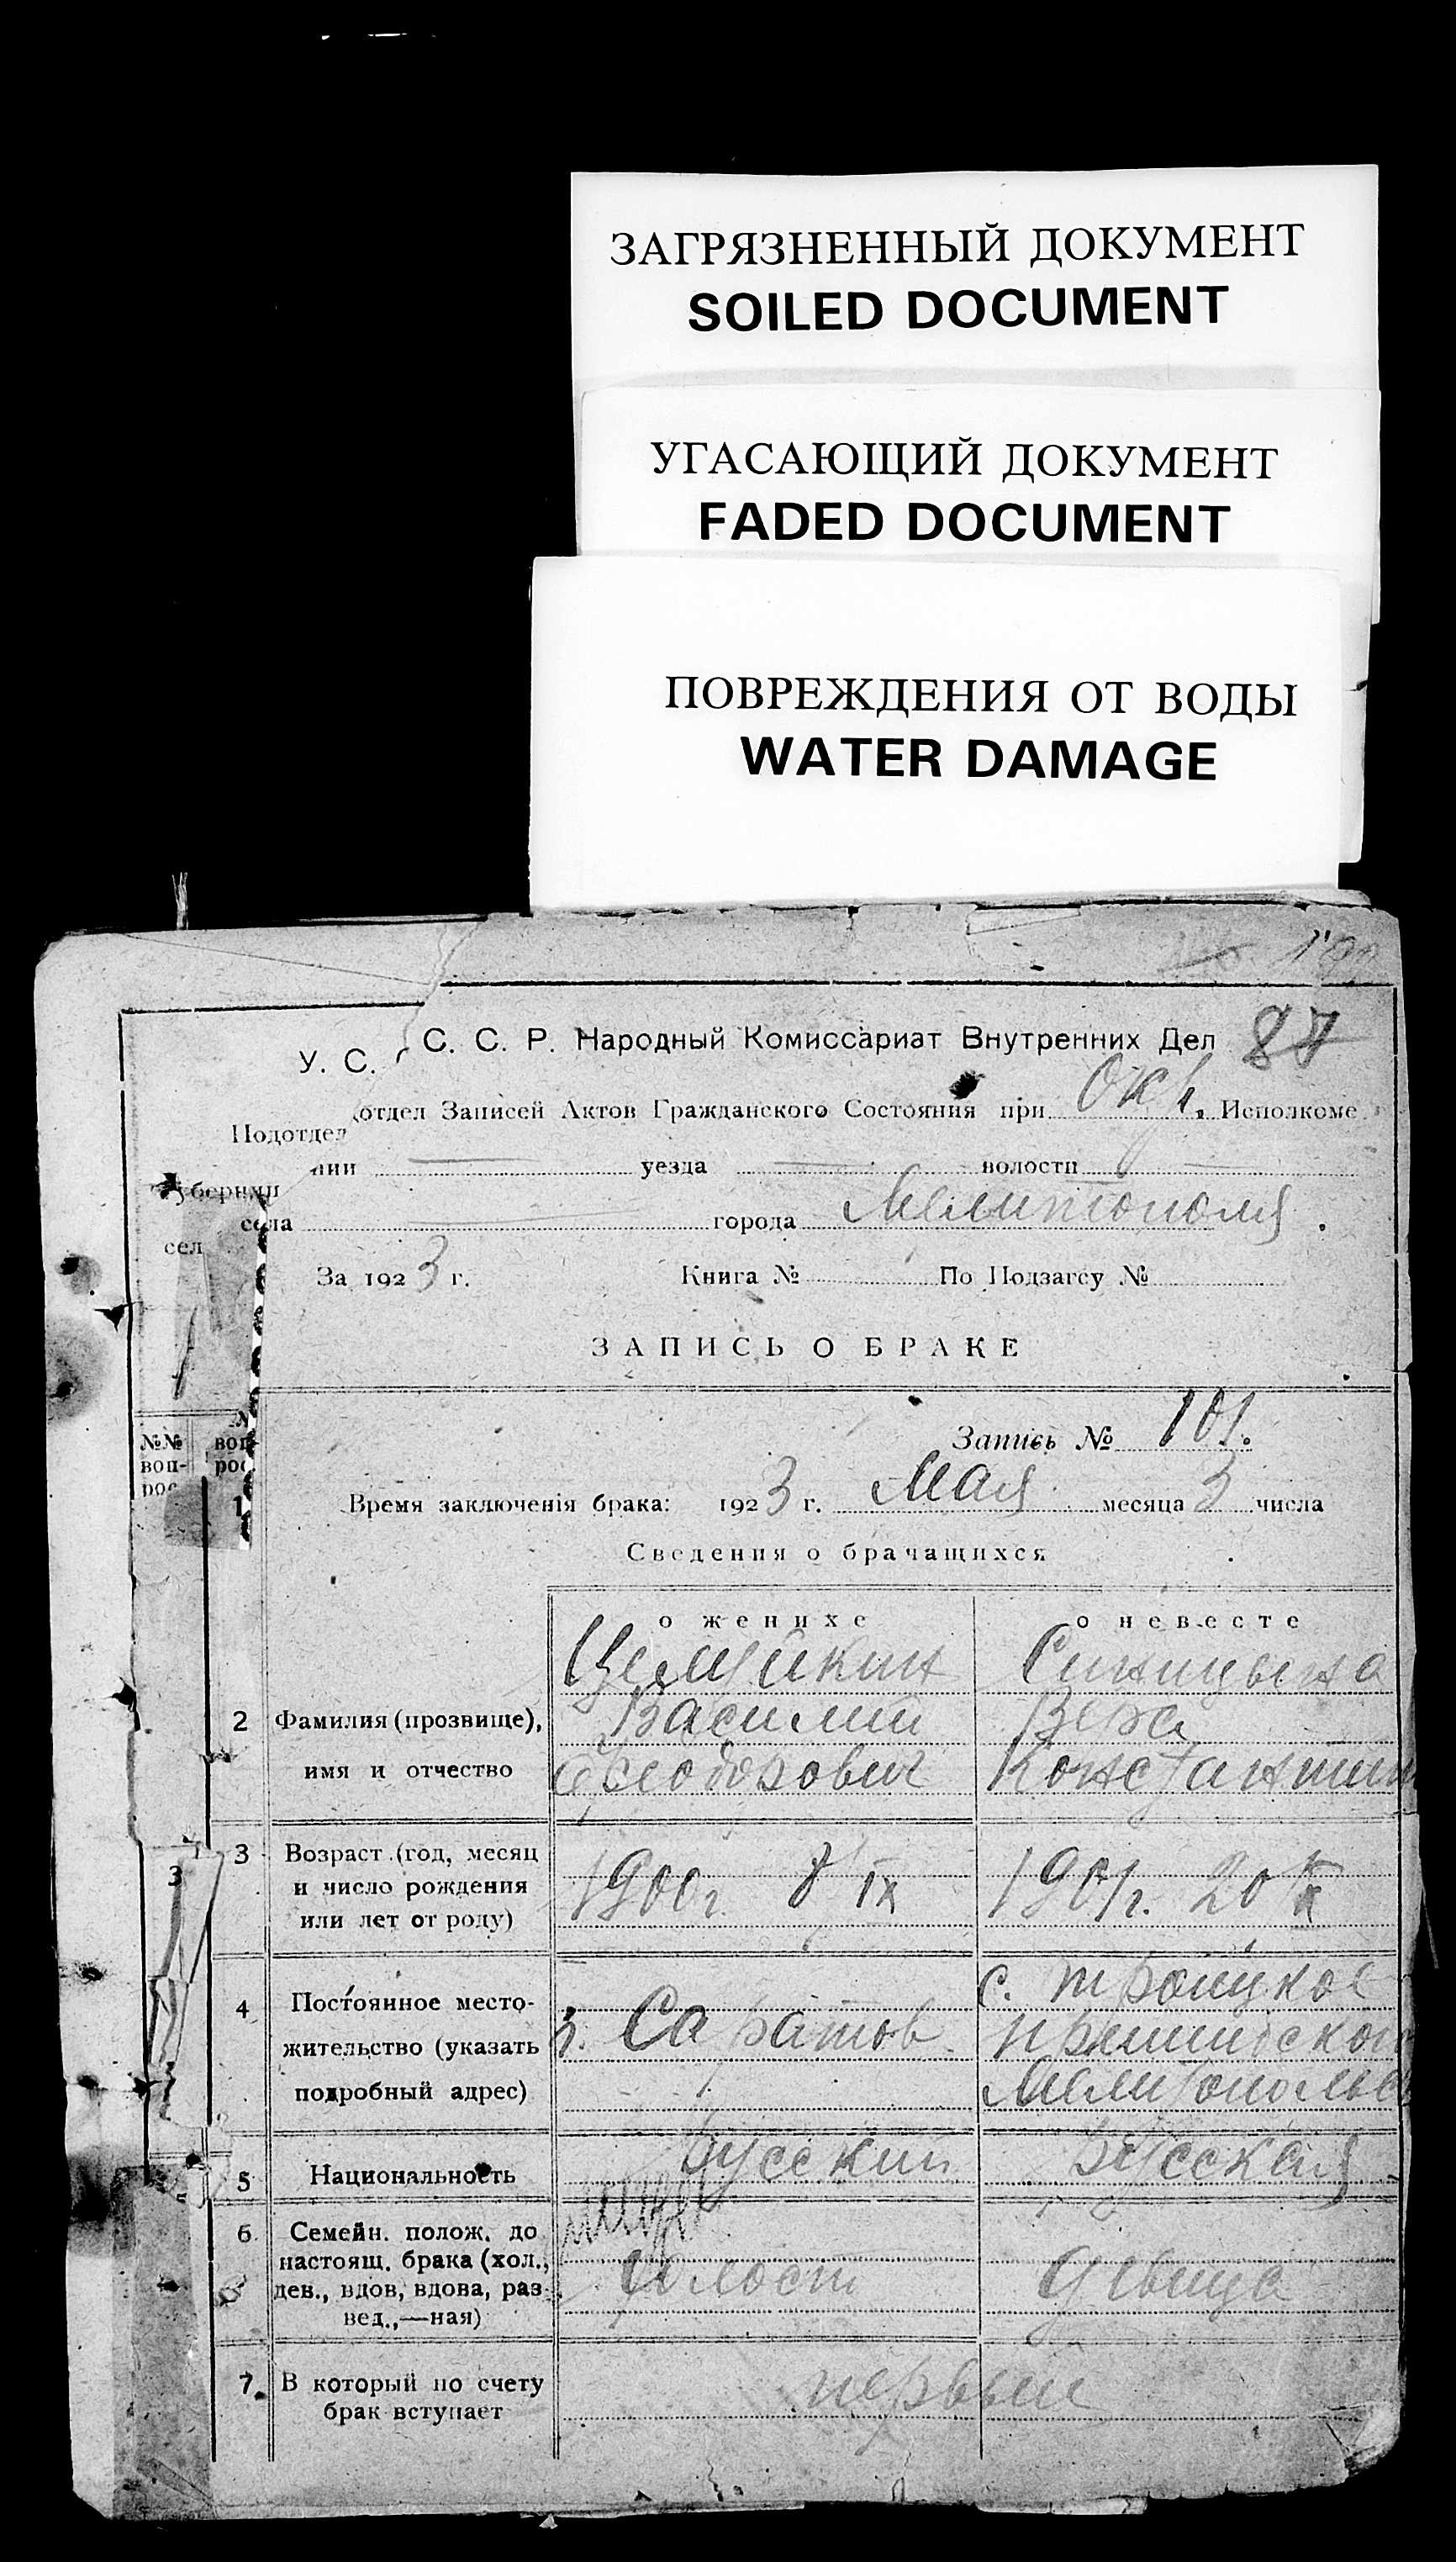 ЗАГРЯЗНЕННЫЙ ДОКУМЕНТ
SOILED DOCUMENT
УГАСАЮЩИЙ ДОКУМЕНТ
FADED DOCUMENT
ПОВРЕЖДЕНИЯ ОТ ВОДЫ
WATER DAMAGE
У. С. С. С. Р. Народный Комиссариат Внутренних Дел 87
Подотдел отдел Записей Актов Гражданского Состояния при Окр. Исполкоме
нии уезда волости
губернии
села города Мелитополя.
сел
За 1923 г. Книга № По Подзагсу №
ЗАПИСЬ О БРАКЕ
Запись № 101.
№№ воп-
воп- рос
рос
1
Время заключенія брака: 1923 г. Мая месяца 3 числа
Сведения о брачащихся
о женихе о невесте
Синицына
2 Фамилия (прозвище), Василий Вера
имя и отчество Феодорович Константин
3 3 Возраст (год, месяц
и число рождения 1900г. 8 IX 1901г. 20 IX
или лет от роду)
с. Троицкое
4 Постоянное место-
жительство (указать г. Саратов
подробный адрес) Мелитопольс
5 Национальность русский русская
6 Семейн. полож. до
настоящ. брака (хол.,
дев., вдов, вдова, раз- холост девица
вед.,—ная)
7. В который по счету первый
брак вступает